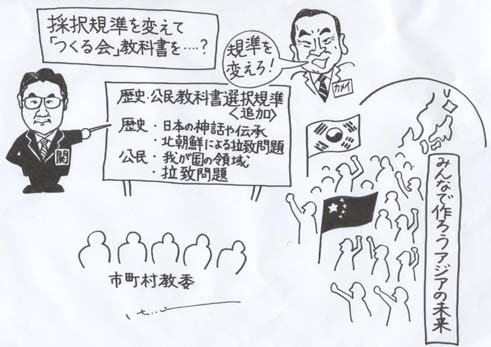 採択規準を変えて
「つくる会」教科書を‥‥?
規準を
変えろ!
カメイ
歴史・公民教科書選択規準
〈追加〉
歴史・日本の神話や伝承
・北朝鮮による拉致問題
公民・我が国の領域
・拉致問題
市町村教委
みんなで作ろうアジアの未来